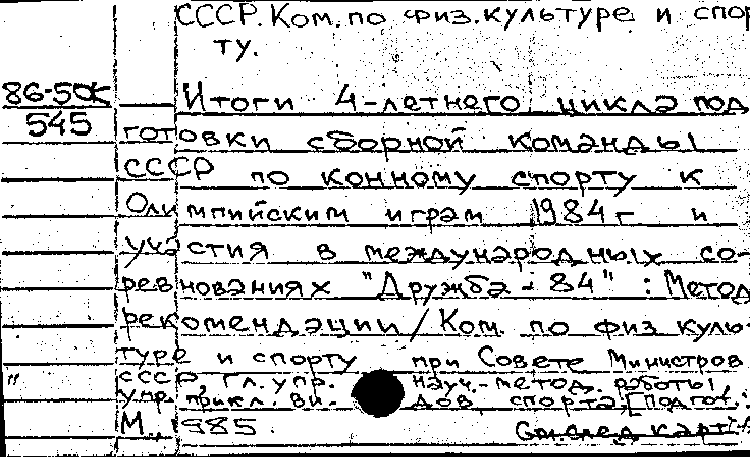 СССР. Ком. по физ. культуре и спор
ту.
86-50К
545
Итоги 4-летнего цикла под
готовки сборной команды
СССР по конному спорту к
Олимпийским играм 1984 г и
участия в международных со-
ревнованиях "Дружба - 84" : Метод
рекомендации / Ком. по физ куль-
туре и спорту при Совете Министров
СССР, Гл. упр. науч.-метод. работы,
упр. прикл. ви- дов спорта; [Подгот.:
М., 1985.
См. след карт